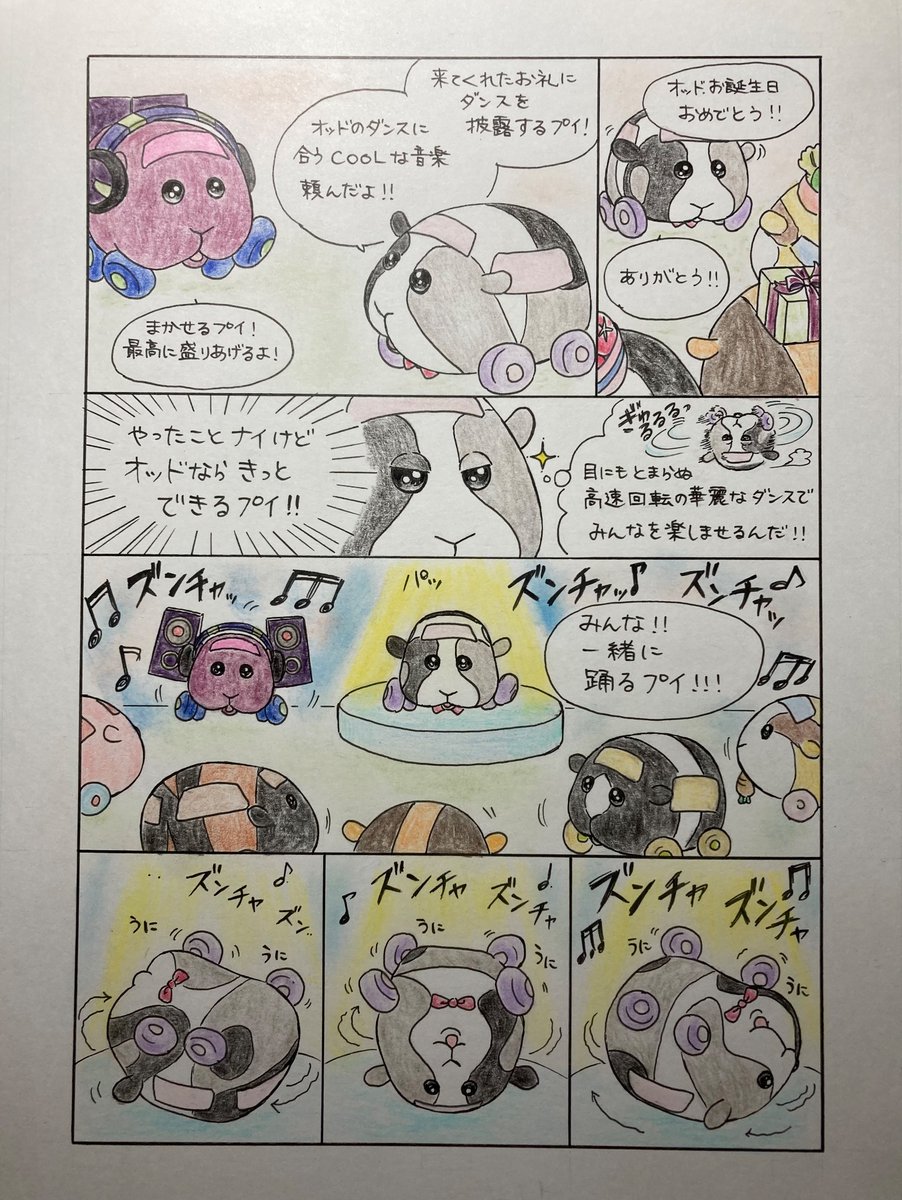 オッド、お誕生日
おめでとう!!
ありがとう!!
来てくれたお礼に
ダンスを
披露するプイ!
オッドのダンスに
合うCOOLな音楽
頼んだよ!!
まかせるプイ!
最高に盛りあげるよ!
ぎゅ
るるるっ
目にもとまらぬ
高速回転の華麗なダンスで
みんなを楽しませるんだ!!
やったことナイけど
オッドならきっと
できるプイ!!
ズンチャッ
ズンチャッ
パッ
ズンチャッ
みんな!!
一緒に
踊るプイ!!!
ズンチャ
ズンチャ
うに
うに
ズンチャ
ズンチャ
うに
うに
ズンチャ
ズン
うに
うに